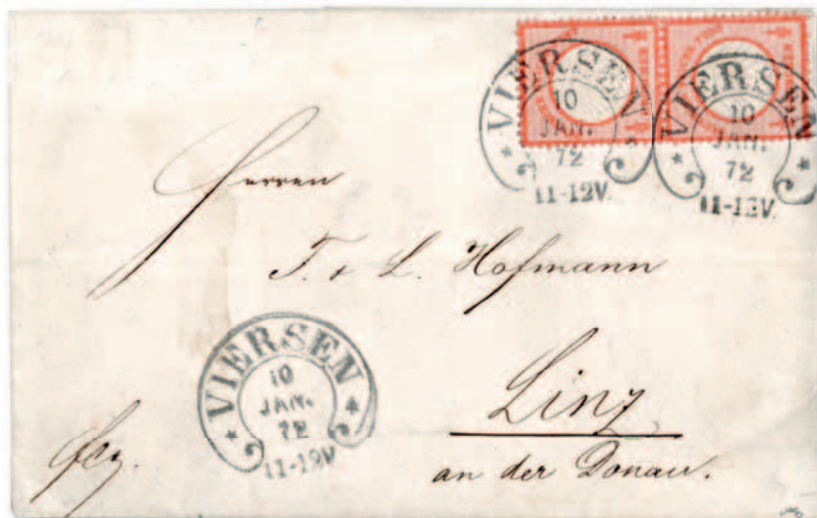 VIERSEN
10
JAN.
72
11-12V.
VIERSEN
10
JAN.
72
11-12V.
Herren
F. & L. Hofmann
VIERSEN
10
JAN.
72
11-12V.
Linz
an der Donau.